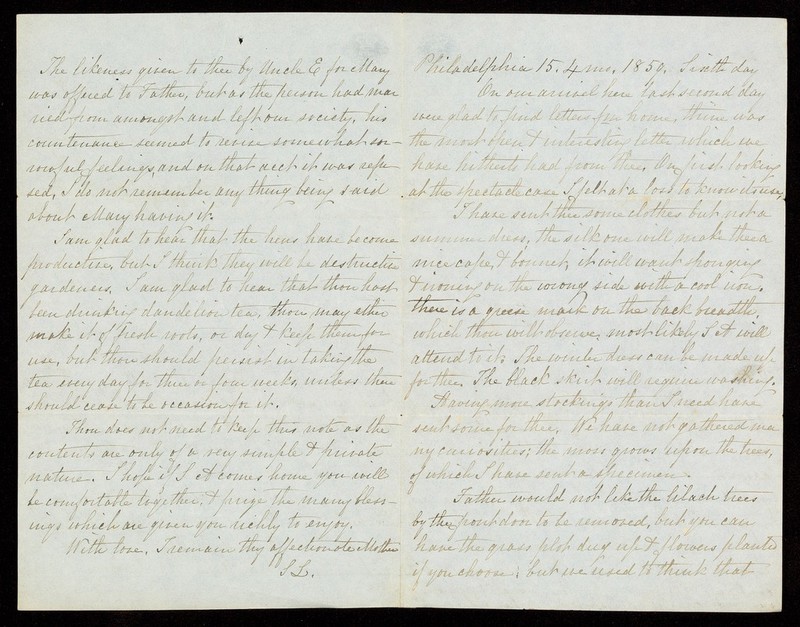 Philadelphia 15. 4 mo. 1850. Sixth day
On our arrival here last second day
were glad to find letters from home, thine was
the most open & interesting letter which we
have hitherto had from thee, On first looking
at the spectacle case I felt at a loss to know its use,
I have sent thee some clothes but not a
summer dress, the silk one will make thee a
nice cape, & bonnet, it will want sponging
& ironing on the wrong side with a cool iron,
there is a grease mark on the back breadth,
which thou wilt observe, most likely S A will
attend to it. The winter dress can be made up
for thee. The black skirt will require washing.
Having more stockings than I need have
sent some for thee, We have not gathered ma
ny curiosities; the moss grows upon the trees,
of which I have sent a specimen.
Father would not like the lilach trees
by the front door to be removed, but you can
have the grass plot dug up & flowers planted
if you choose; but we used to think that
The likeness given to thee by Uncle E for Mary
was offered to Father, but as the person had mar
ried from amongst and left our society, his
countenance seemed to revive somewhat sor-
rowful feelings, and on that acct it was refu
sed, I do not remember any thing being said
about Mary having it.
I am glad to hear that the hens have become
productive, but I think they will be destructive
gardeners. I am glad to hear that thou hast
been drinking dandelion tea, thou may either
make it of fresh roots, or dry & keep them for
use, but thou should persist in taking the
tea every day for three or four weeks, unless there
should cease to be occasion for it.
Thou does not need to keep this note as the
contents are only of a very simple & private
nature. I hope if S A comes home you will
be comfortable together, & prize the many bless-
ings which are given you richly to enjoy.
With love, I remain thy affectionate Mother
S L.